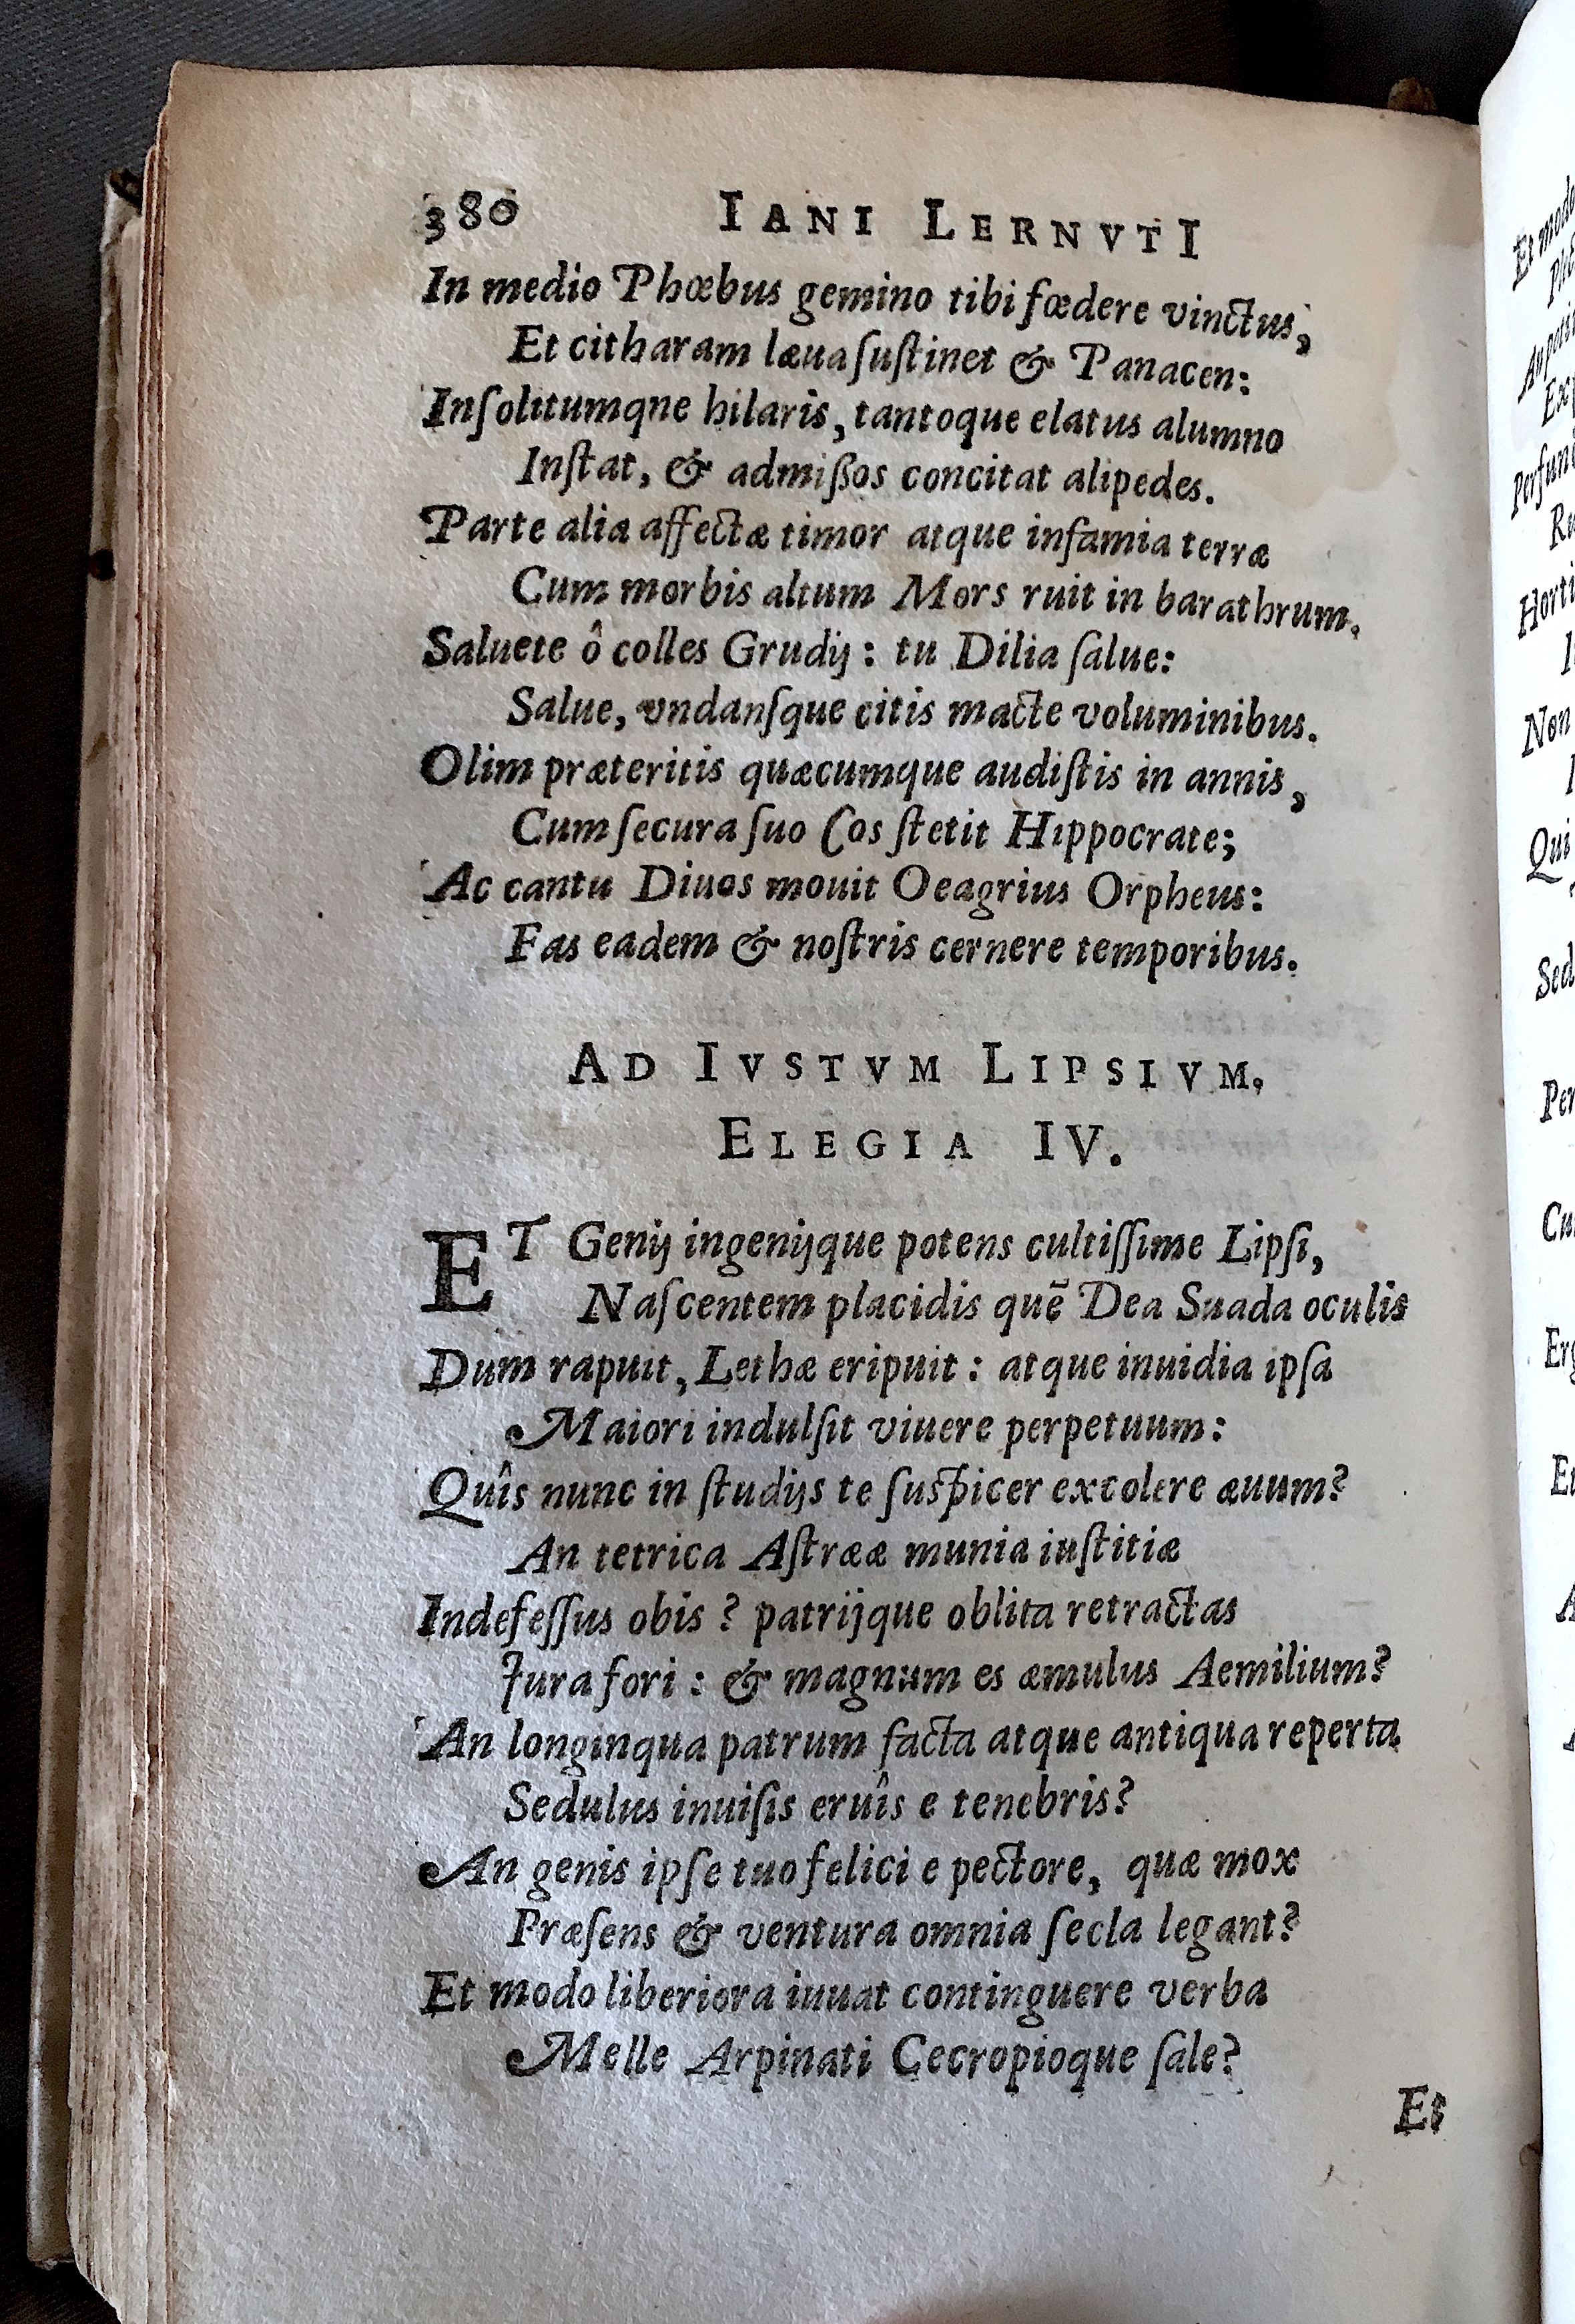 380 IANI LERNVTI
In medio Phœbus gemino tibi fœdere vinctus,
Et citharam læua ſuſtinet & Panacen:
Inſolitumqne hilaris, tantoque elatus alumno
Inſtat, & admißos concitat alipedes.
Parte alia affectæ timor atque infamia terræ
Cum morbis altum Mors ruit in barathrum.
Saluete ô colles Grudij: tu Dilia ſalue:
Salue, vndanſque citis macte voluminibus.
Olim præteritis quæcumque audiſtis in annis,
Cum ſecura ſuo Cos ſtetit Hippocrate;
Ac cantu Diuos mouit Oeagrius Orpheus:
Fas eadem & noſtris cernere temporibus.
AD IVSTVM LIPSIVM,
ELEGIA IV.
ET Genij ingenijque potens cultiſſime Lipſi,
Naſcentem placidis quē Dea Suada oculis
Dum rapuit, Lethæ eripuit: atque inuidia ipſa
Maiori indulſit viuere perpetuum:
Quîs nunc in ſtudijs te ſuſpicer excolere æuum?
An tetrica Aſtrææ munia iuſtitiæ
Indefeſſus obis? patrijque oblita retractas
Jura fori: & magnum es æmulus Aemilium?
An longinqua patrum facta atque antiqua reperta
Sedulus inuiſis eruîs e tenebris?
An genis ipſe tuo felici e pectore, quæ mox
Præſens & ventura omnia ſecla legant?
Et modo liberiora iuuat continguere verba
Melle Arpinati Cecropioque ſale?
Et
Et modo
Perfun
Horti
Non
Qui
Sed
Per
Cu
Erg